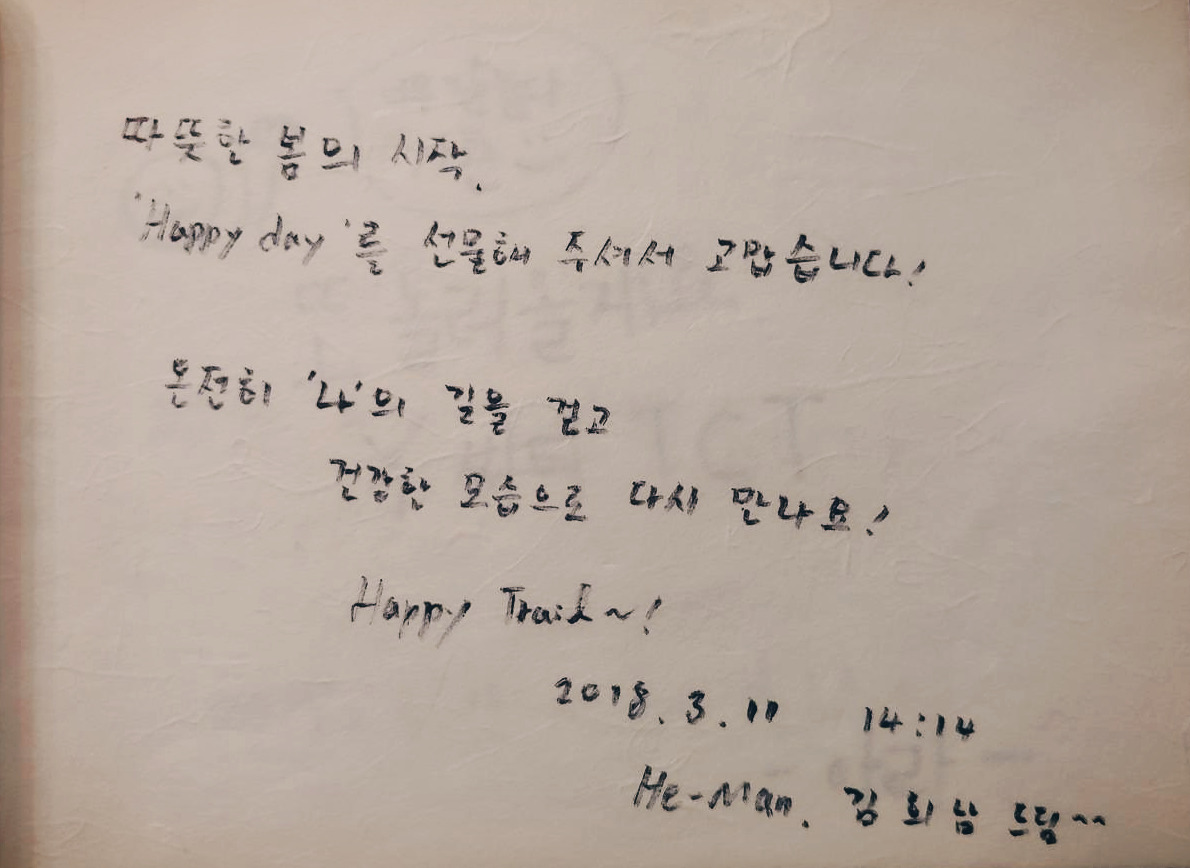 따뜻한 봄의 시작.
'Happy day'를 선물해 주셔서 고맙습니다!
온전히 '나'의 길을 걷고
건강한 모습으로 다시 만나요!
Happy Trail~!
2018. 3. 11 14:14
He-Man. 김희남 드림~~